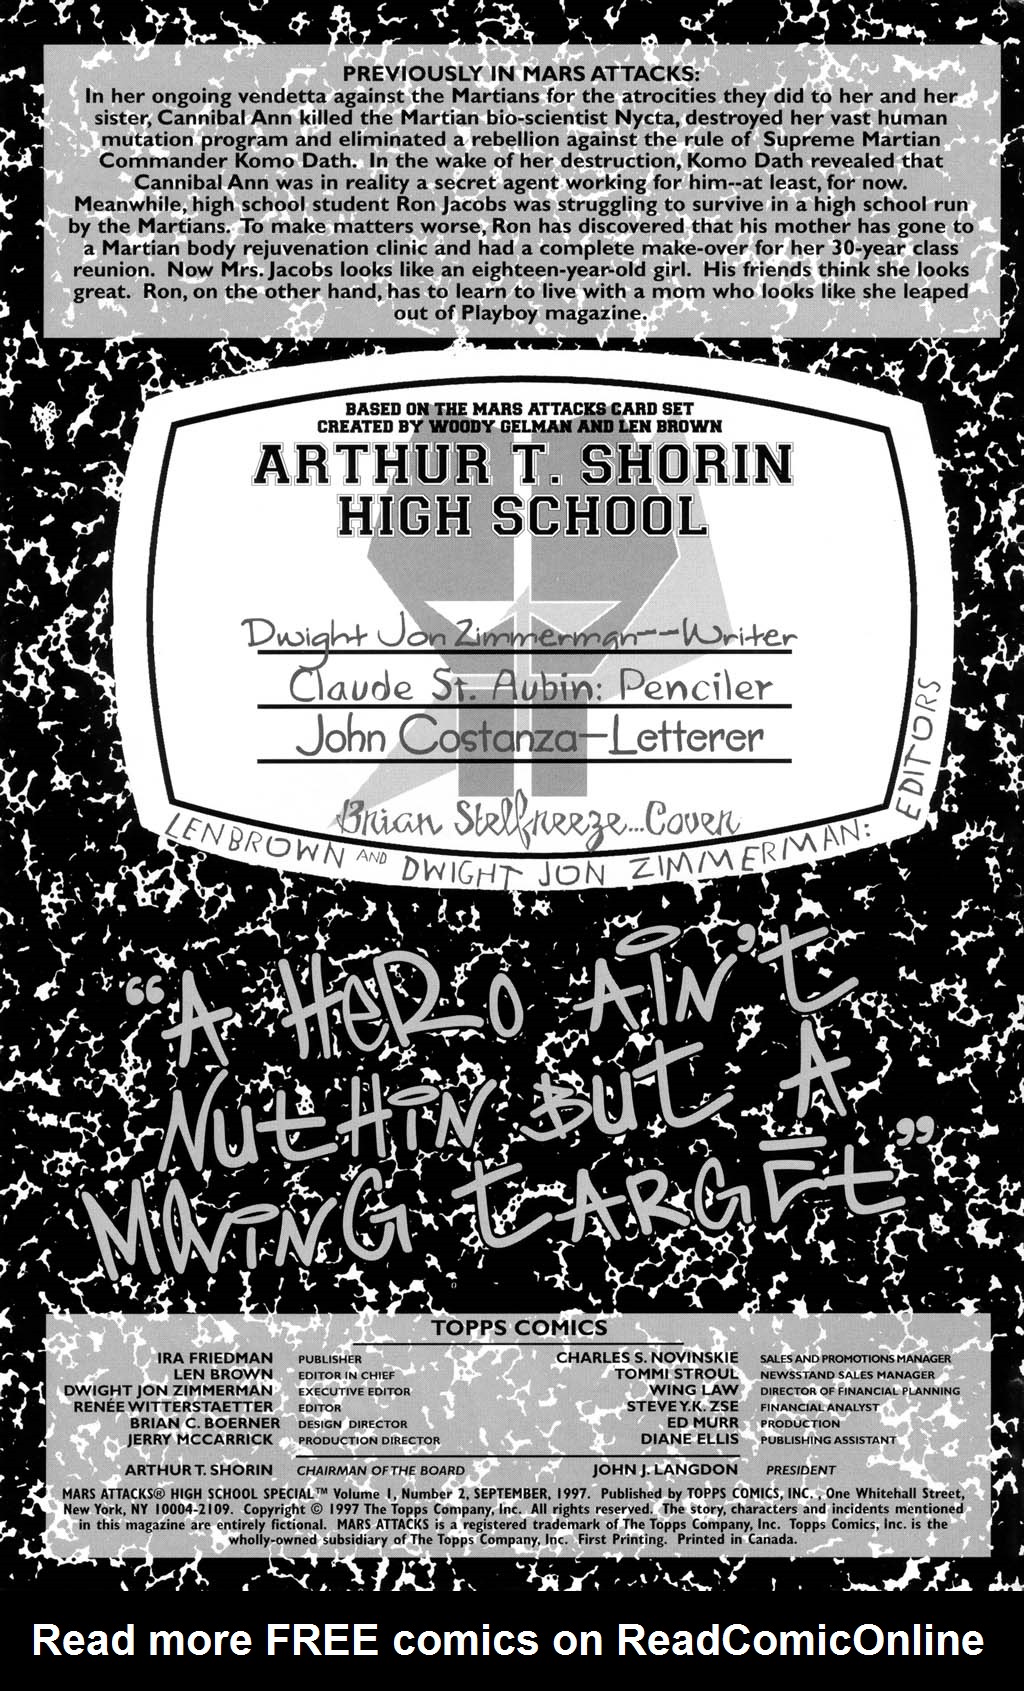 PREVIOUSLY IN MARS ATTACKS:
In her ongoing vendetta against the Martians for the atrocities they did to her and her
sister, Cannibal Ann killed the Martian bio-scientist Nycta, destroyed her vast human
mutation program and eliminated a rebellion against the rule of Supreme Martian
Commander Komo Dath. In the wake of her destruction, Komo Dath revealed that
Cannibal Ann was in reality a secret agent working for him--at least, for now.
Meanwhile, high school student Ron Jacobs was struggling to survive in a high school run
by the Martians. To make matters worse, Ron has discovered that his mother has gone to
a Martian body rejuvenation clinic and had a complete make-over for her 30-year class
reunion. Now Mrs. Jacobs looks like an eighteen-year-old girl. His friends think she looks
great. Ron, on the other hand, has to learn to live with a mom who looks like she leaped
out of Playboy magazine.
BASED ON THE MARS ATTACKS CARD SET
CREATED BY WOODY GELMAN AND LEN BROWN
ARTHUR T. SHORIN
HIGH SCHOOL
Dwight Jon Zimmerman--Writer
Claude St. Aubin: Penciler
John Costanza-Letterer
Brian Stelfreeze...Cover
LEN BROWN AND DWIGHT JON ZIMMERMAN: EDITORS
"A HERO AIN't
NUtHiN BUt A
MOViNG tARGEt"
TOPPS COMICS
IRA FRIEDMAN PUBLISHER CHARLES S. NOVINSKIE SALES AND PROMOTIONS MANAGER
LEN BROWN EDITOR IN CHIEF TOMMI STROUL NEWSSTAND SALES MANAGER
DWIGHT JON ZIMMERMAN EXECUTIVE EDITOR WING LAW DIRECTOR OF FINANCIAL PLANNING
RENÉE WITTERSTAETTER EDITOR STEVE Y.K. ZSE FINANCIAL ANALYST
BRIAN C. BOERNER DESIGN DIRECTOR ED MURR PRODUCTION
JERRY MCCARRICK PRODUCTION DIRECTOR DIANE ELLIS PUBLISHING ASSISTANT
ARTHUR T. SHORIN CHAIRMAN OF THE BOARD JOHN J. LANGDON PRESIDENT
MARS ATTACKS® HIGH SCHOOL SPECIAL™ Volume 1, Number 2, SEPTEMBER, 1997. Published by TOPPS COMICS, INC. , One Whitehall Street,
New York, NY 10004-2109. Copyright © 1997 The Topps Company, Inc. All rights reserved. The story, characters and incidents mentioned
in this magazine are entirely fictional. MARS ATTACKS is a registered trademark of The Topps Company, Inc. Topps Comics, Inc. is the
wholly-owned subsidiary of The Topps Company, Inc. First Printing. Printed in Canada.
Read more FREE comics on ReadComicOnline